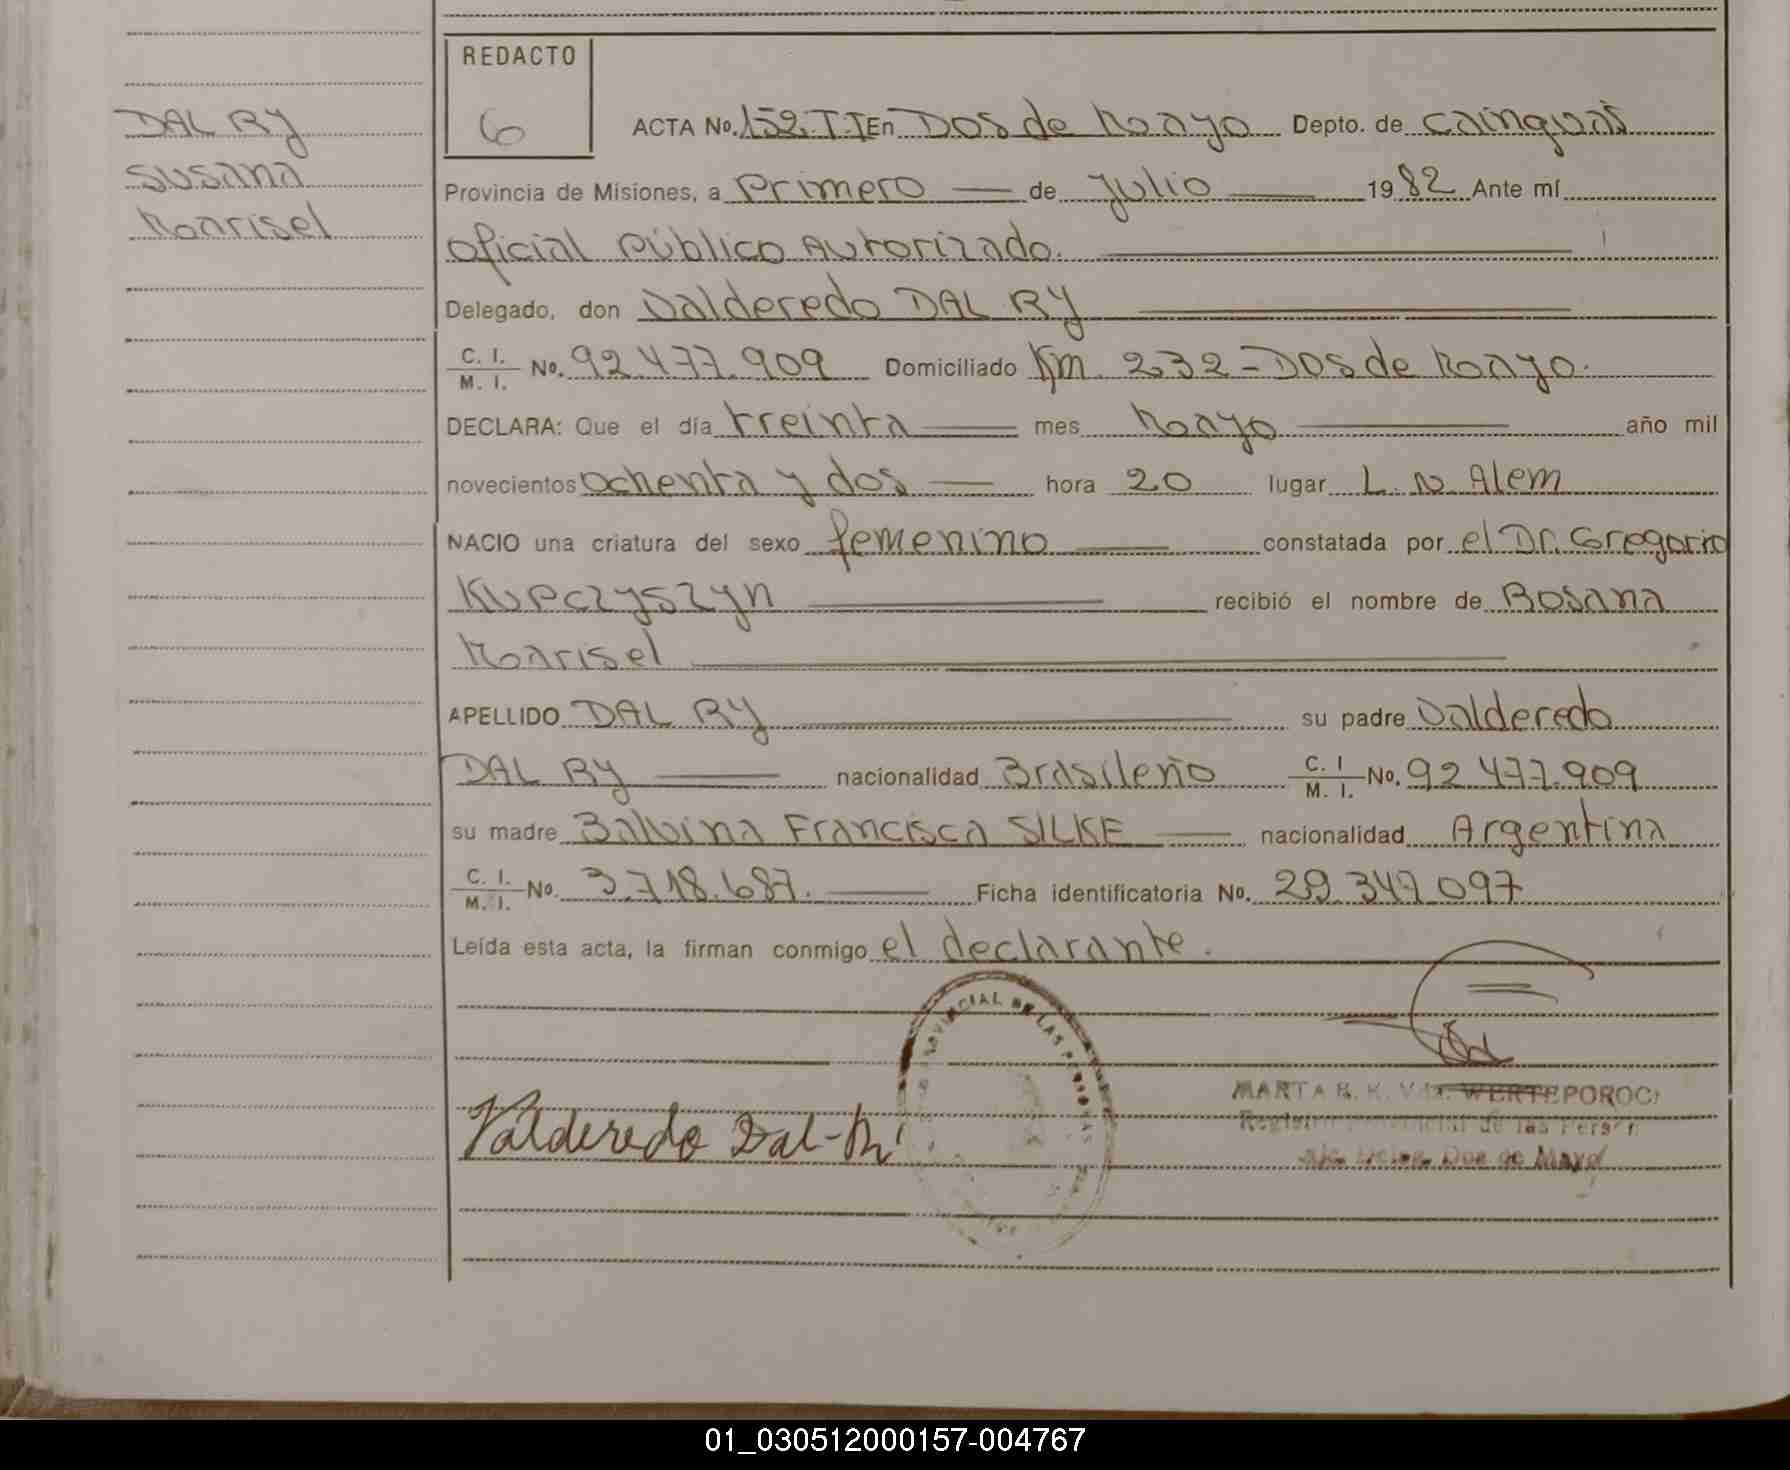 REDACTO
6
DAL RY
SUSANA
Marisel
ACTA No. 152. T.I En Dos de Mayo Depto. de Cainguás
Provincia de Misiones, a Primero de Julio 1982 Ante mí
Oficial Público Autorizado.
Delegado, don Valderedo DAL RY
C. I.
M. I. No. 92.477.909 Domiciliado Km. 232 - Dos de Mayo.
DECLARA: Que el día treinta mes Mayo año mil
novecientos ochenta y dos hora 20 lugar L. N. Alem
NACIO una criatura del sexo femenino constatada por el Dr. Gregorio
Kupczyszyn recibió el nombre de Rosana
Marisel
APELLIDO DAL RY su padre Valderedo
DAL RY nacionalidad Brasileño C. I M. I. No. 92.477.909
su madre Balvina Francisca SILKE nacionalidad Argentina
C. I.
M. I. No. 3.718.687. Ficha identificatoria No. 29.347.097
Leída esta acta, la firman conmigo el declarante.
Valderedo Dal-Ri
MARTA WERTEPOROC
Registro Provincial de las Person
Dos de Mayo
01_030512000157-004767